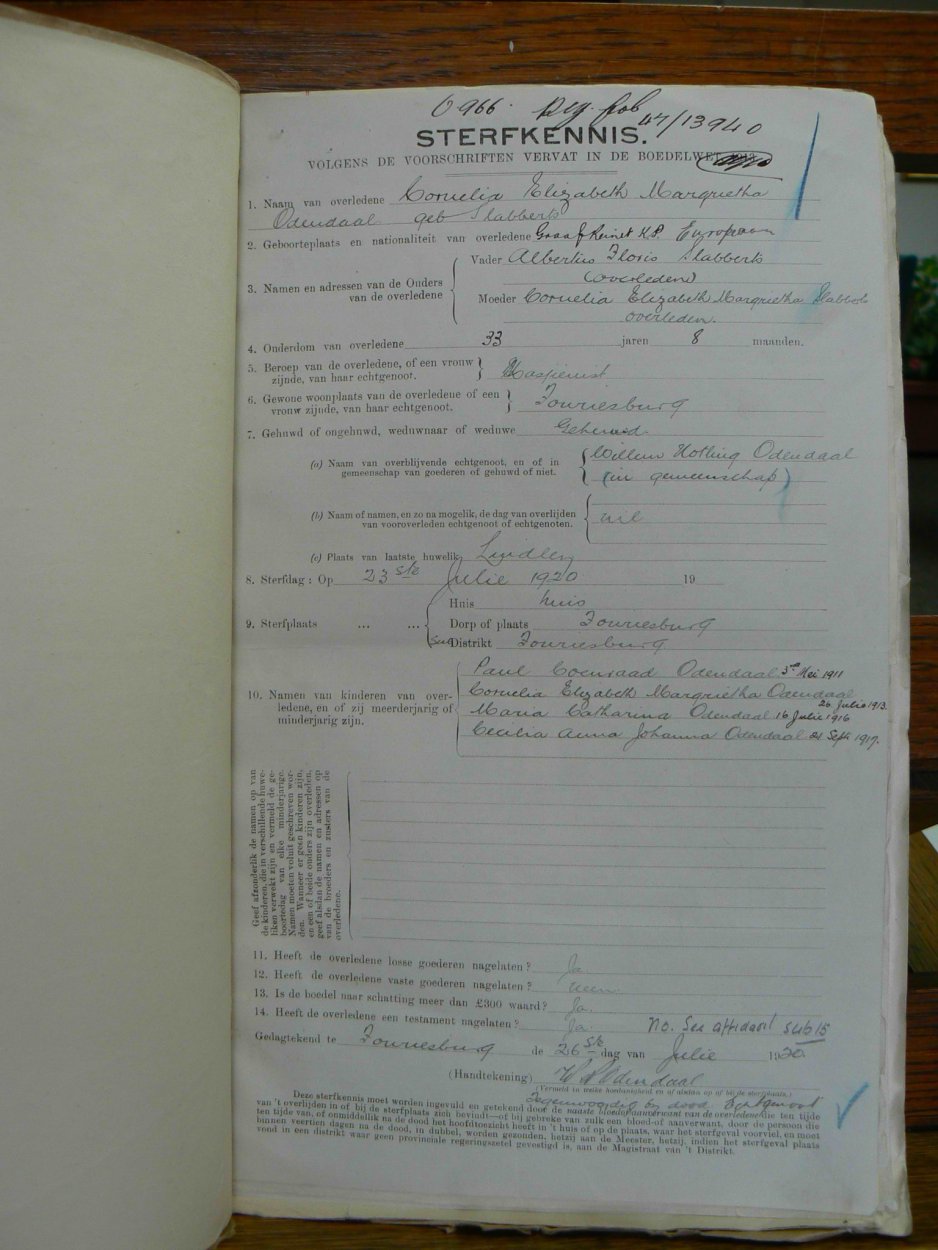 0966. Reg. fol 47/13940
STERFKENNIS.
VOLGENS DE VOORSCHRIFTEN VERVAT IN DE BOEDELWET
1. Naam van overledene Cornelia Elizabeth Margrietha
Odendaal geb Slabberts
2. Geboorteplaats en nationaliteit van overledene Graaf Reinet K.P. Europeaan
3. Namen en adressen van de Ouders van de overledene
Vader Albertus Floris Slabberts
(overleden)
Moeder Cornelia Elizabeth Margrietha Slabberts
overleden.
4. Onderdom van overledene 33 jaren 8 maanden.
5. Beroep van de overledene, of een vrouw
zijnde, van haar echtgenoot.
6. Gewone woonplaats van de overledene of een
vrouw zijnde, van haar echtgenoot. Fouriesburg
7. Gehuwd of ongehuwd, weduwnaar of weduwe Gehuwd
(a) Naam van overblijvende echtgenoot, en of in
gemeenschap van goederen of gehuwd of niet.
Willem Odendaal
(in gemeenschap)
(b) Naam of namen, en zo na mogelik, de dag van overlijden
van vooroverleden echtgenoot of echtgenoten. nil
(c) Plaats van laatste huwelik, Lindley
8. Sterfdag: Op 23ste Julie 1920 19
Huis huis
9. Sterfplaats ... ... Dorp of plaats Fouriesburg
Distrikt Fouriesburg
10. Namen van kinderen van over-
ledene, en of zij meerderjarig of
minderjarig zijn.
Paul Coenraad Odendaal 3de Mei 1911
Cornelia Elizabeth Margrietha Odendaal
26 Julie 1913.
Maria Catharina Odendaal 16 Julie 1916
Cecilia Anna Johanna Odendaal 21 Sept. 1917.
Geef afzonderlik de namen op van
de kinderen, die in verschillende huwe-
liken verwekt zijn en vermeld de ge-
boortedag van elke minderjarige.
Namen moeten voluit geschreven wor-
den. Wanneer er geen kinderen zijn,
en een of beide ouders zijn overleden,
geef alsdan de namen en adressen op
van de broeders en zusters van de
overledene.
11. Heeft de overledene losse goederen nagelaten? Ja
12. Heeft de overledene vaste goederen nagelaten? neen
13. Is de boedel naar schatting meer dan £300 waard? Ja.
14. Heeft de overledene een testament nagelaten? Ja no. See affidavit sub 15
Gedagtekend te Fouriesburg de 26ste dag van Julie 1920.
(Handtekening) Odendaal
(Vermeld in welke hoedanigheid en of alsdan op of bij de sterfplaats.)
Tegenwoordig bij dood. Echtgenoot
Deze sterfkennis moet worden ingevuld en getekend door de naaste bloed- of aanverwant van de overledene die ten tijde
van 't overlijden in of bij de sterfplaats zich bevindt—of bij gebreke van zulk een bloed-of aanverwant, door de persoon die
ten tijde van, of onmiddellik na de dood het hoofdtoezicht heeft in 't huis of op de plaats, waar het sterfgeval voorviel, en moet
binnen veertien dagen na de dood, in dubbel, worden gezonden, hetzij aan de Meester, hetzij, indien het sterfgeval plaats
vond in een distrikt waar geen provinciale regeringszetel gevestigd is, aan de Magistraat van 't Distrikt.